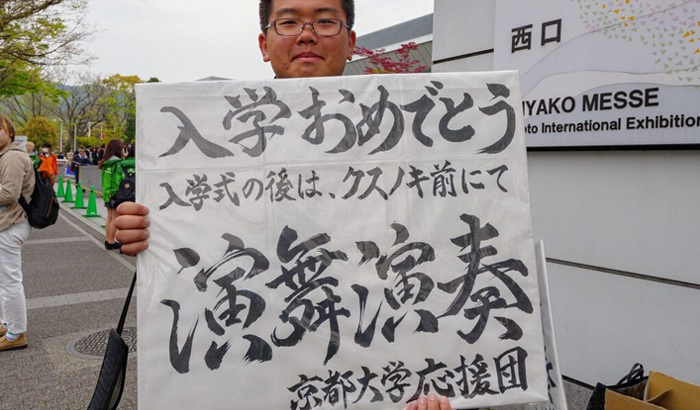 西口
IYAKO MESSE
oto International Exhibition
入学おめでとう
入学式の後は、クスノキ前にて
演舞演奏
京都大学応援団